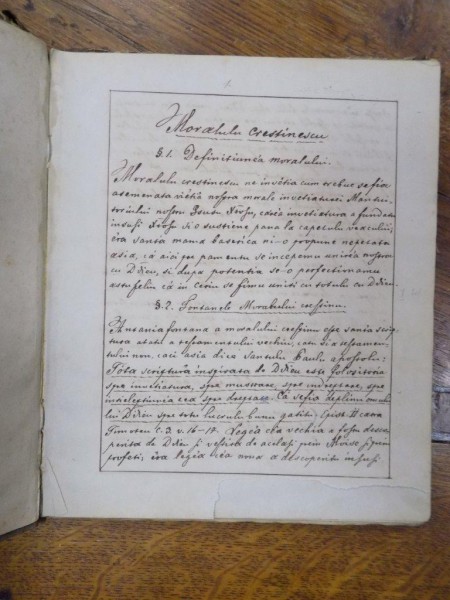 Moralulu crestinescu
§.1. Definitiunea moralului.
Moralulu crestinescu ne invétia cum trebue se fia
asemenata viétia nostra morale invetiaturei Mantui-
toriului nostru Isusu Xrstu, carea invetiatura a fundat'o
insusi Xrstu si o sustiene pana la capetulu veacului,
éra santa mama baserica ni-o propune nepetata
asia, cá aici pre pamentu se incepemu unirea nostra
cu Ddieu, si dupa potentia se-o perfectionamu
astufeliu cá in ceriu se fimu uniti cu totulu cu Ddieu.
§.2. Fontanele Moralului crestinu.
Antania fontana a moralului crestinu este santa scrip-
tura atatu a testamentului vechiu, catu si a testamen-
tului nou, caci asia dice santulu Paulu apostolu:
Tóta scriptura inspirata de Ddieu este folositoria
spre invetiatura, spre mustrare, spre indreptare, spre
intieleptirea cea spre dreptate. Cá sefia deplinu omulu
lui Ddieu spre totu lucrulu bunu gatitu. Epist. II catra
Timoteu c. 3. v. 16-17. Legea cea vechia a fostu desco-
perita de Ddieu si vestita de acelasi prin Moise si prin
profeti; éra legea cea noua a descoperitu insusi